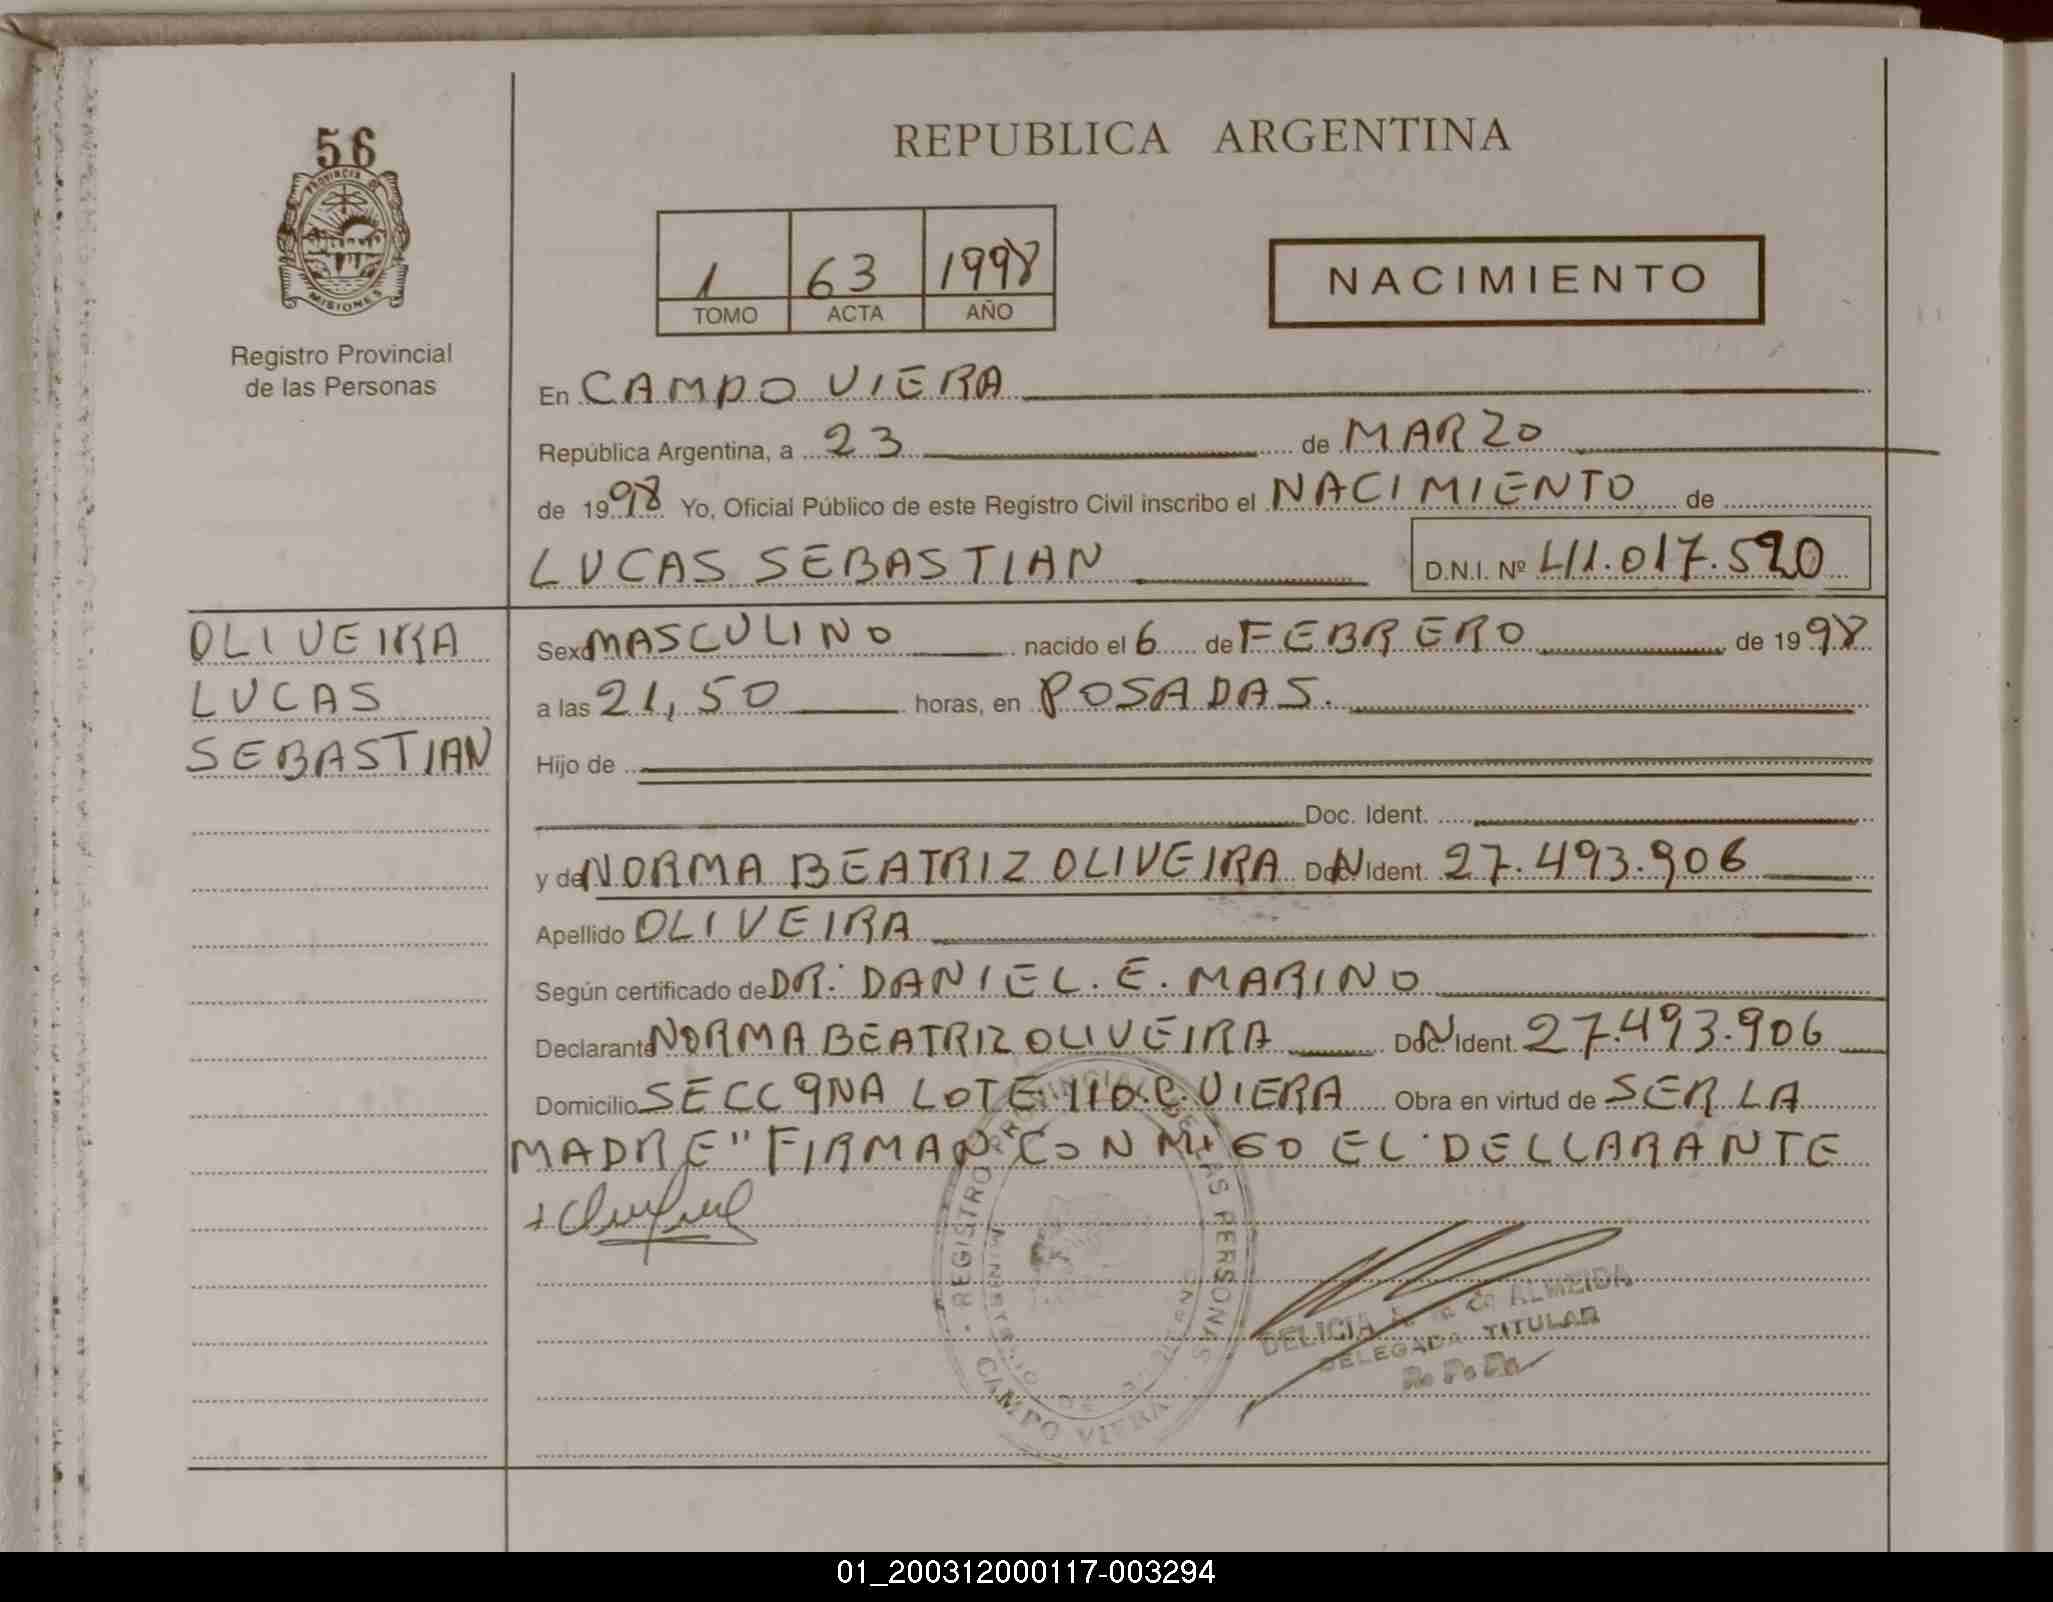 56
PROVINCIA DE
MISIONES
Registro Provincial
de las Personas
REPUBLICA ARGENTINA
1 63 1998
TOMO ACTA AÑO
NACIMIENTO
En CAMPO VIERA
República Argentina, a 23 de MARZO
de 1998 Yo, Oficial Público de este Registro Civil inscribo el NACIMIENTO de
LUCAS SEBASTIAN D.N.I. Nº 41.017.520
OLIVEIRA
LUCAS
SEBASTIAN
Sexo MASCULINO nacido el 6 de FEBRERO de 1998
a las 21,50 horas, en POSADAS.
Hijo de
Doc. Ident.
y de NORMA BEATRIZ OLIVEIRA Doc. N Ident. 27.493.906
Apellido OLIVEIRA
Según certificado de DR. DANIEL. E. MARINO
Declarante NORMA BEATRIZ OLIVEIRA Doc. N Ident. 27.493.906
Domicilio SECC 9NA LOTE 110.C.VIERA Obra en virtud de SER LA
MADRE" FIRMAN CONMIGO EL DECLARANTE
REGISTRO PROVINCIAL DE LAS PERSONAS
MINISTERIO DE GOBIERNO
CAMPO VIERA
DELICIA de ALMEIDA
DELEGADA TITULAR
01_200312000117-003294